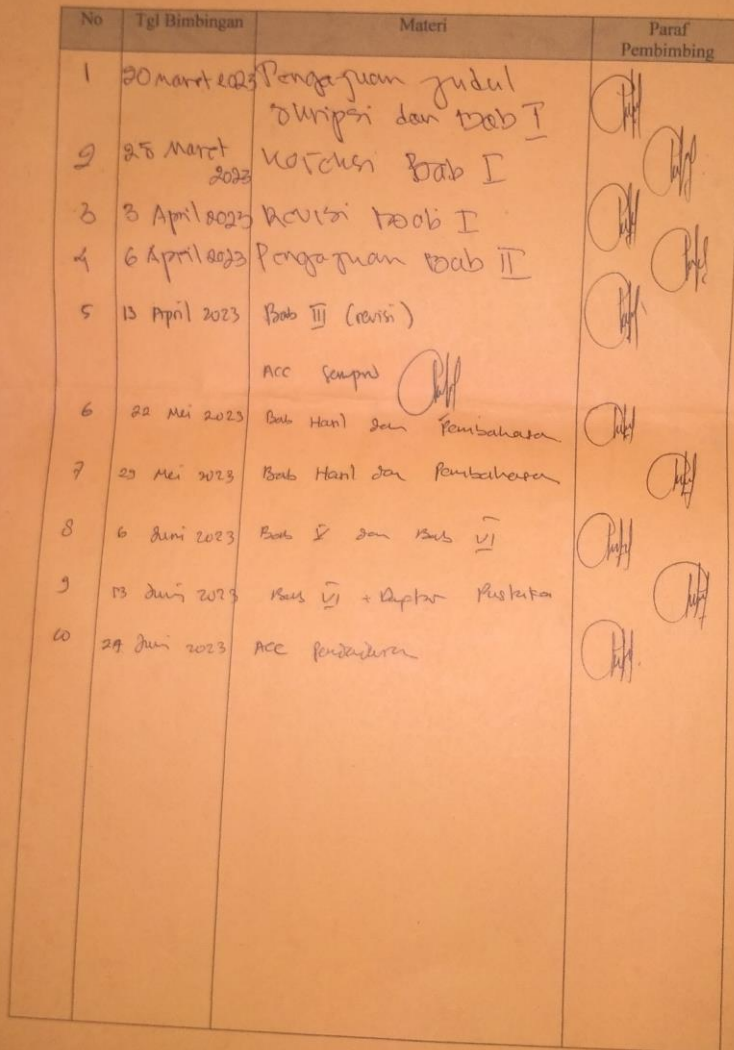 No Tgl Bimbingan Materi Paraf
Pembimbing
1 20 Maret 2023 Pengajuan judul
skripsi dan Bab I
2 28 Maret Koreksi Bab I
2023
3 3 April 2023 Revisi Bab I
4 6 April 2023 Pengajuan Bab II
5 13 April 2023 Bab III (revisi)
ACC Sempro
6 22 Mei 2023 Bab Hasil dan Pembahasan
7 29 Mei 2023 Bab Hasil dan Pembahasan
8 6 Juni 2023 Bab V dan Bab VI
9 13 Juni 2023 Bab VI + Daptar Pustaka
10 Juni 2023 ACC